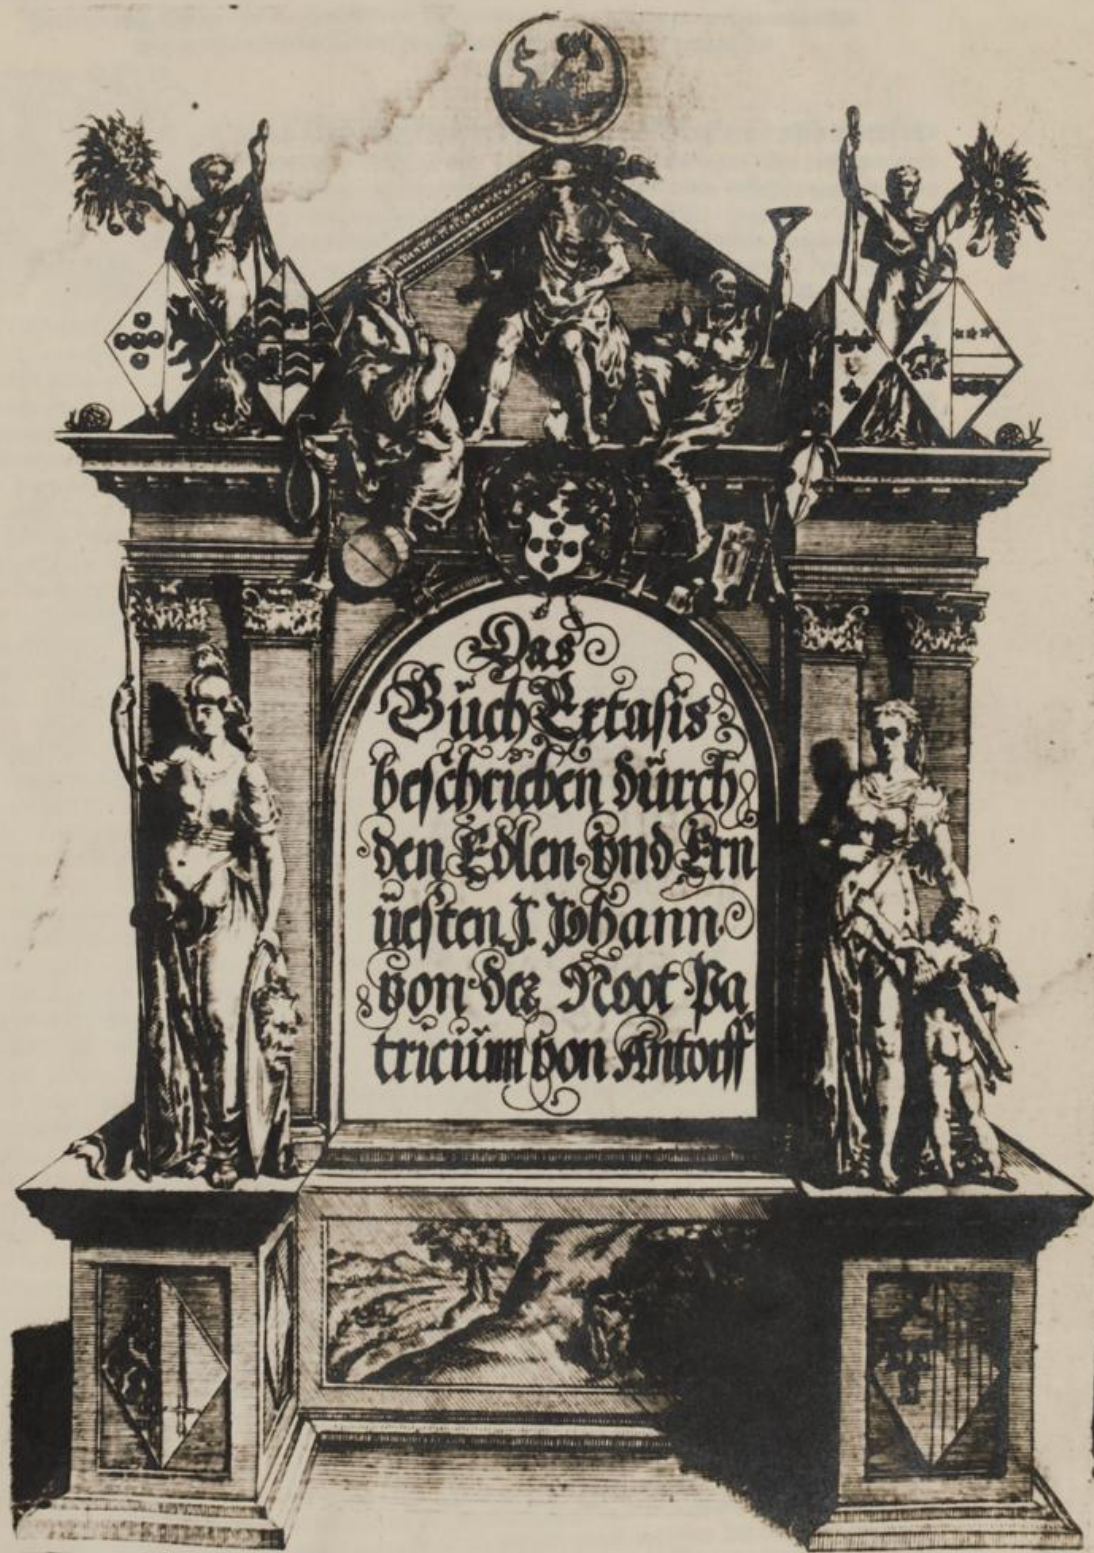 Das
Büch Extasis
beschrieben dürch
den Edlen vnd Ern
üesten J. Johann
von der Noot Pa
tricium von Antorff